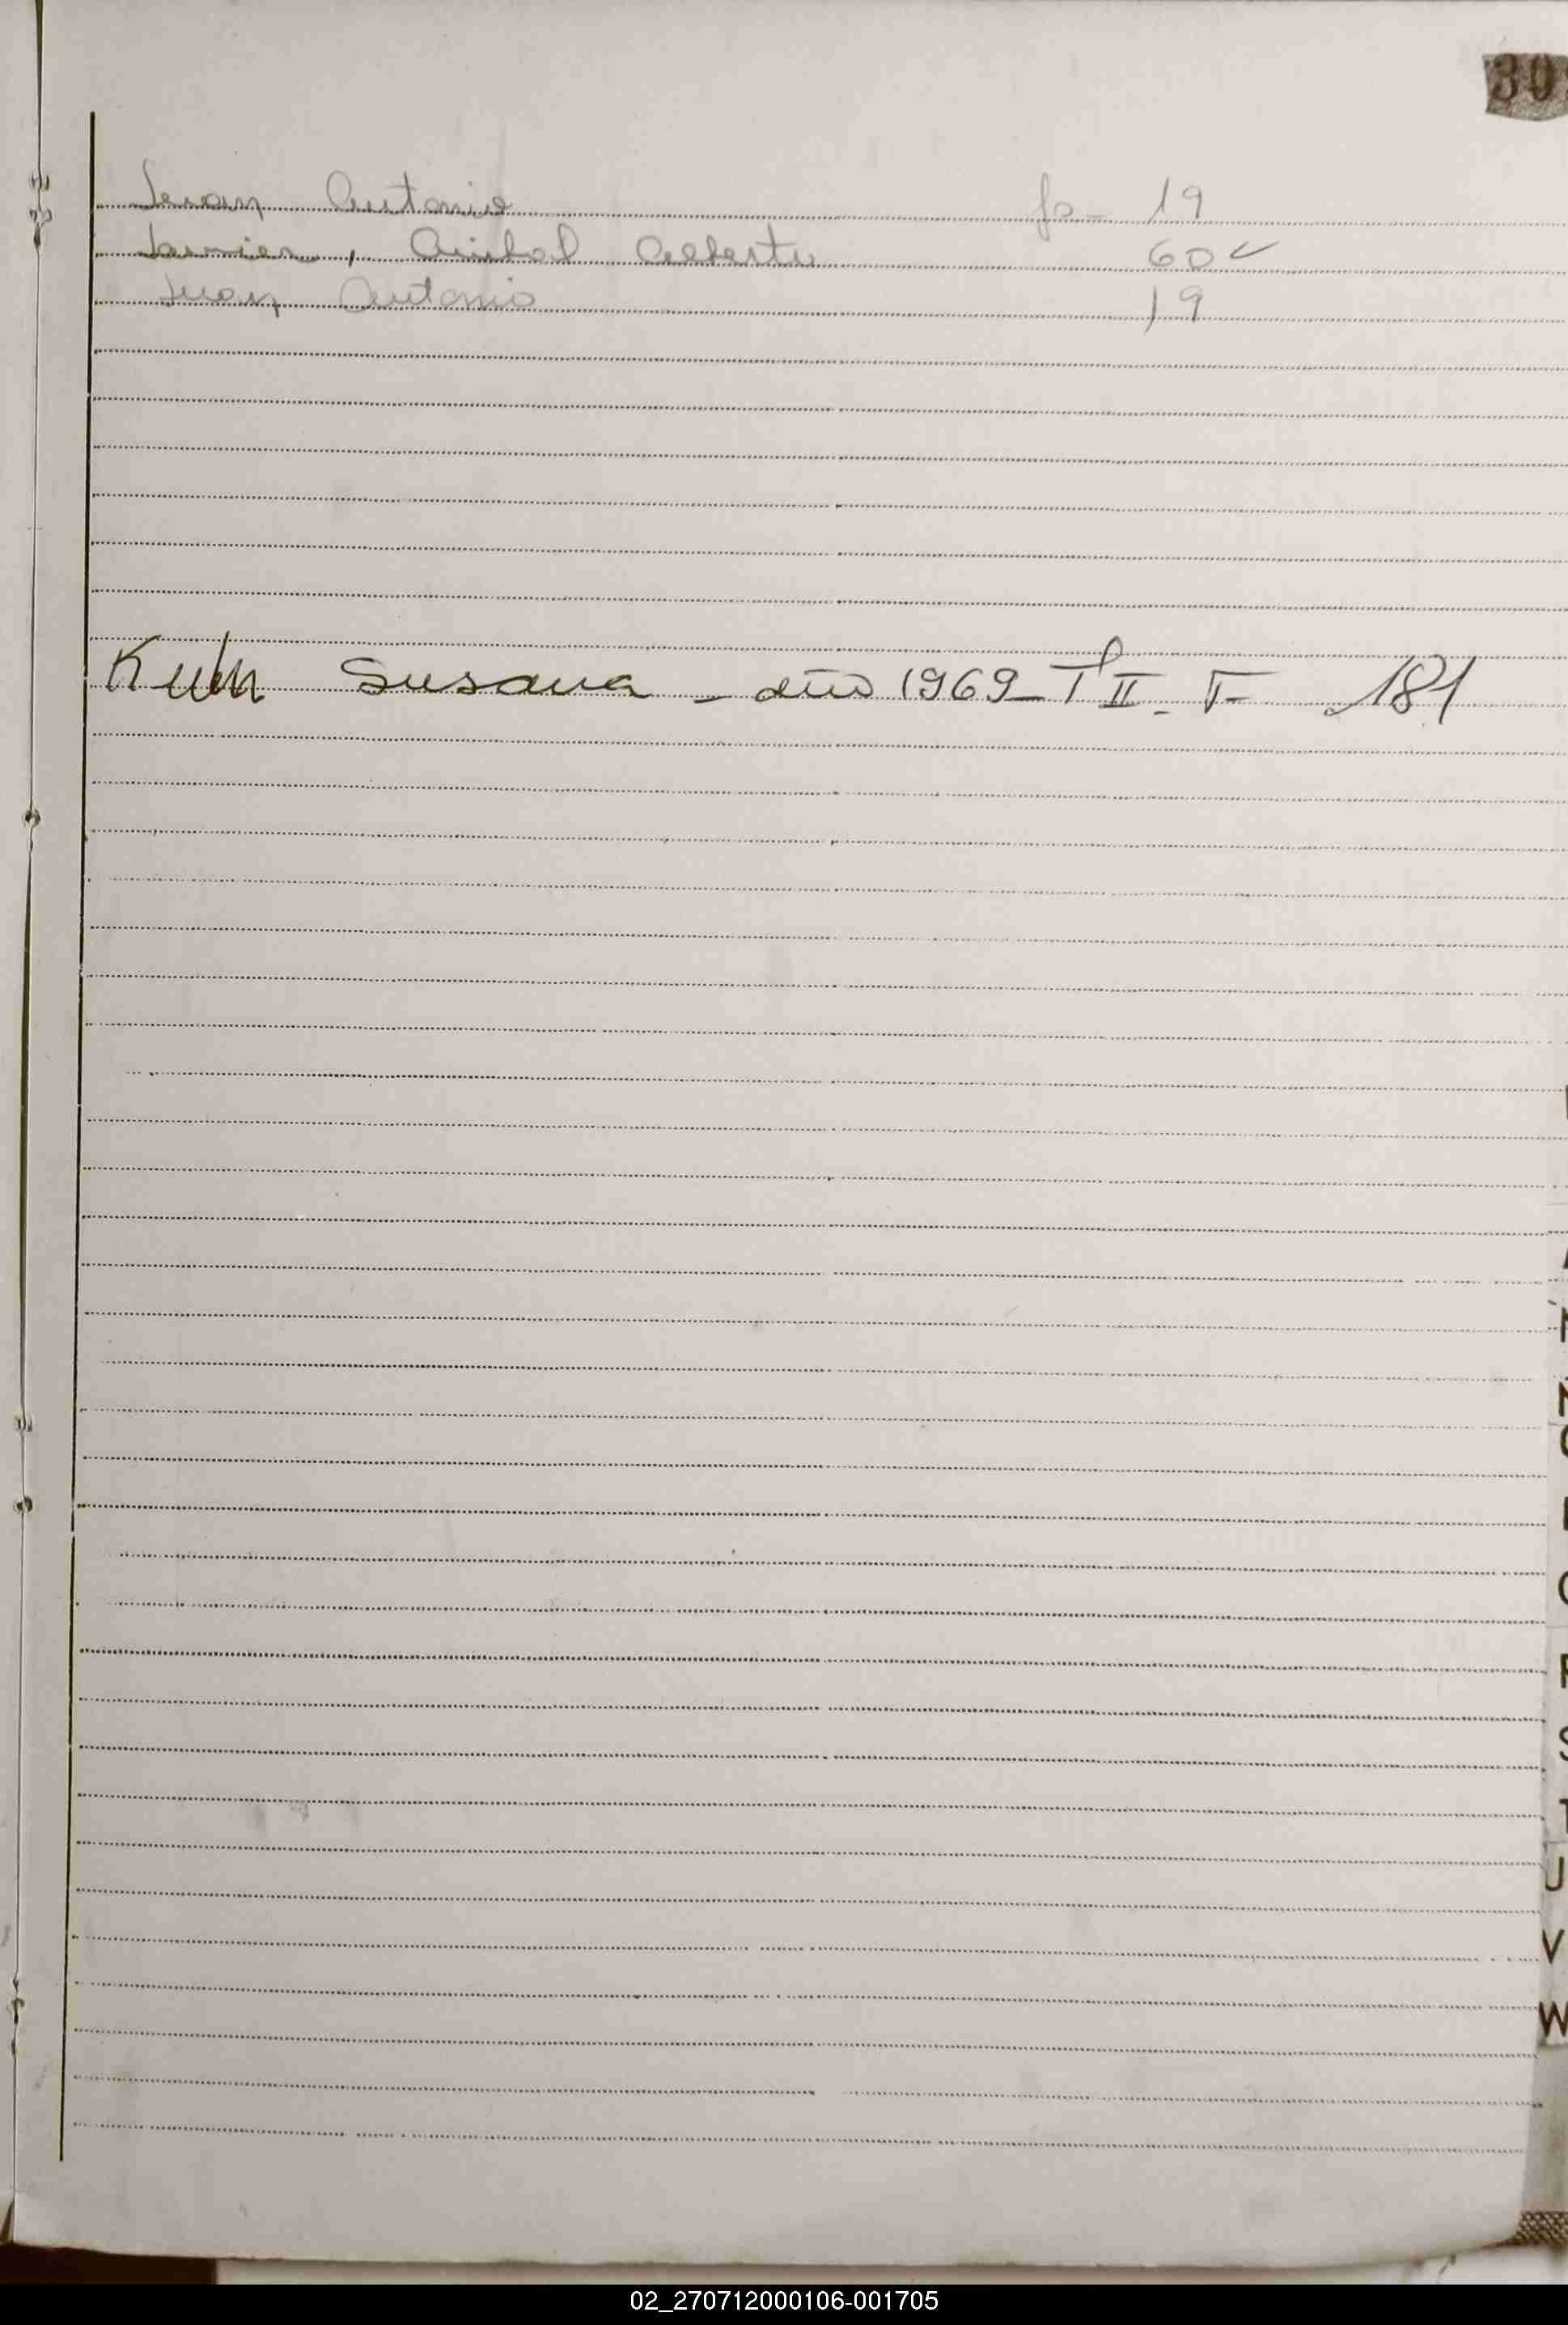 30
Juan Antonio fo - 19
Javier, Anibal Alberto 60 ✓
Juan Antonio 19
Kuhn Susana - año 1969 - Tº II - F - 181
S
T
U
V
W
02_270712000106-001705